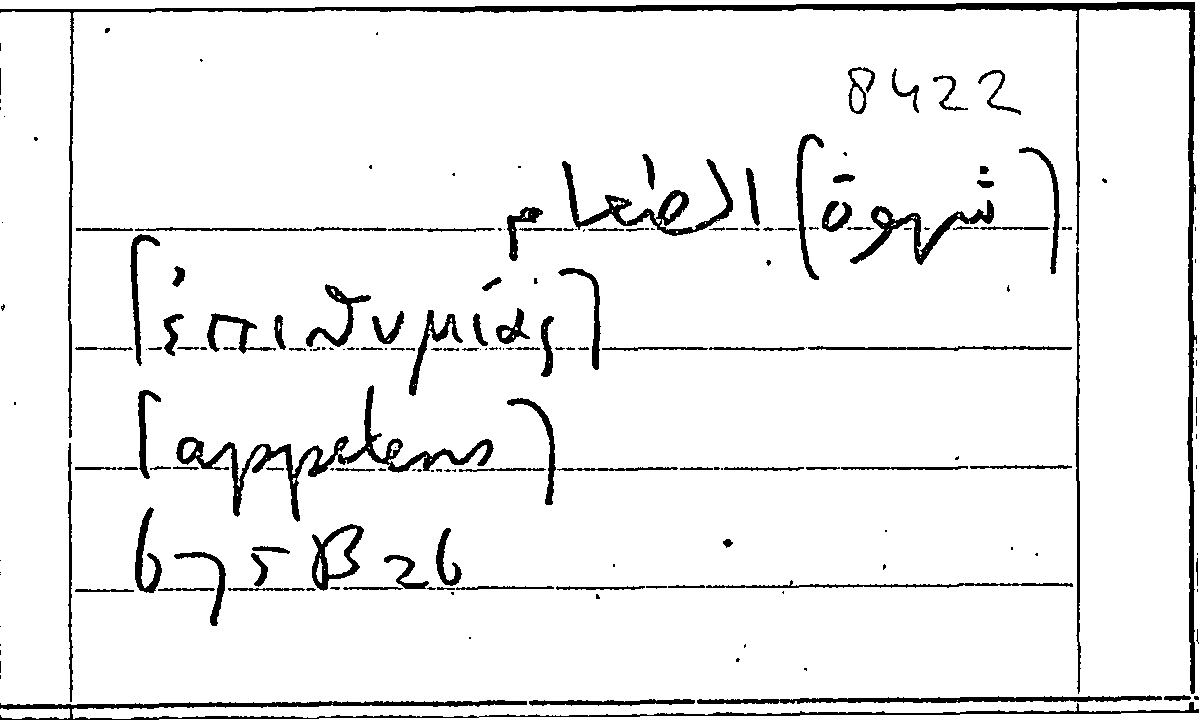 8422
[شهوة] الطعام
[ἐπιθυμίας]
[appetens]
675B26